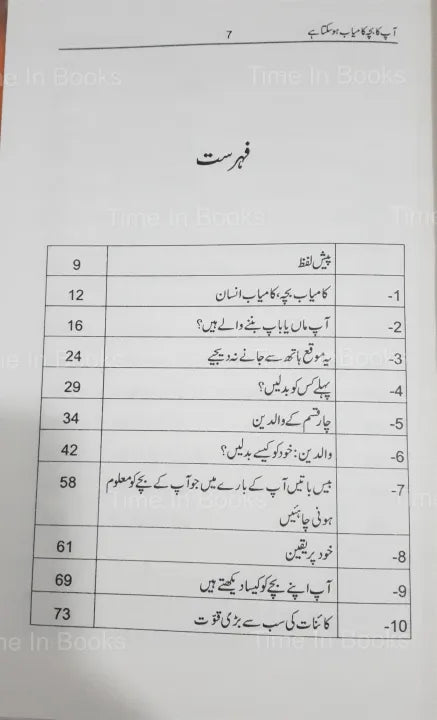 آپ کا بچہ کامیاب ہو سکتا ہے 7
Time In Books
فہرست
پیش لفظ 9
1- کامیاب بچہ، کامیاب انسان 12
2- آپ ماں یا باپ بننے والے ہیں؟ 16
3- یہ موقع ہاتھ سے جانے نہ دیجیے 24
4- پہلے کس کو بدلیں؟ 29
5- چار قسم کے والدین 34
6- والدین: خود کو کیسے بدلیں؟ 42
7- بیس باتیں آپ کے بارے میں جو آپ کے بچے کو معلوم 58
ہونی چاہئیں
8- خود پر یقین 61
9- آپ اپنے بچے کو کیسا دیکھتے ہیں 69
10- کائنات کی سب سے بڑی قوّت 73